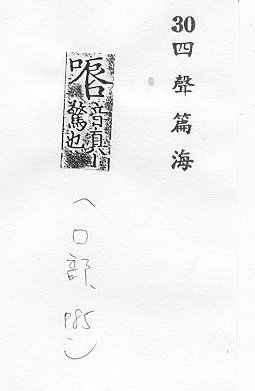 30四聲篇海
音真
驚也
(口部、P85)